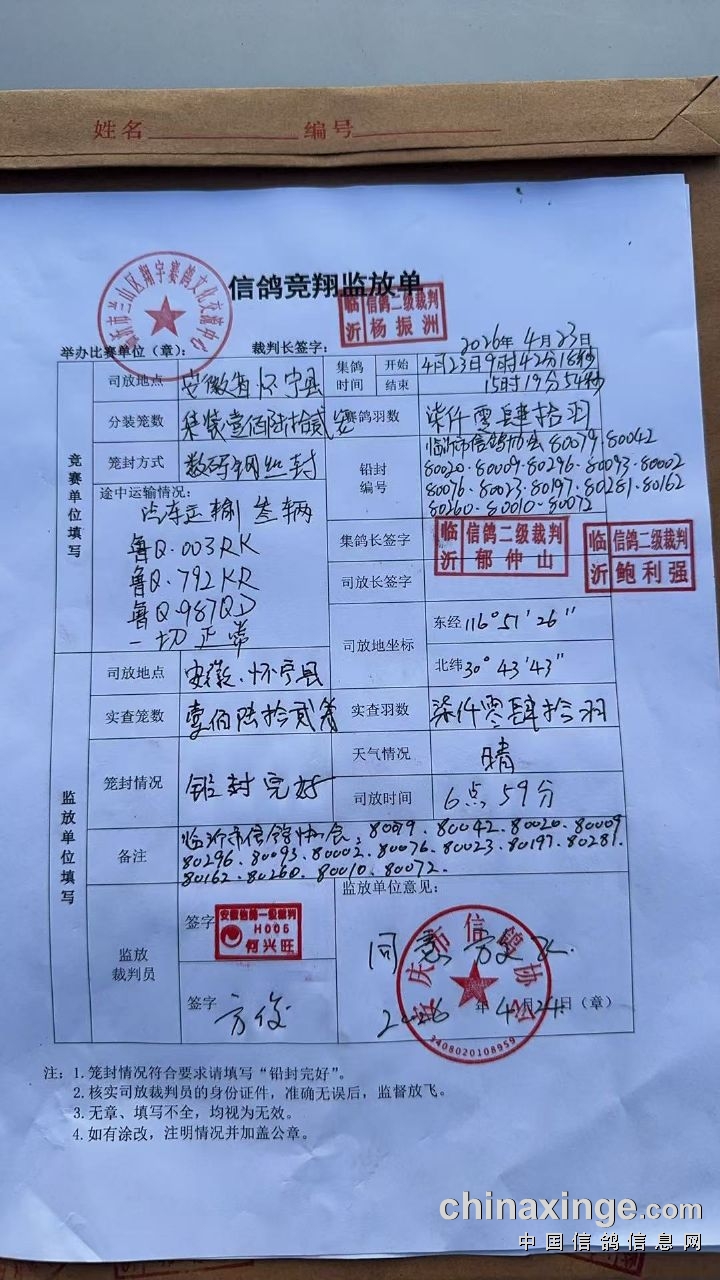 姓名 编号
临沂市兰山区翔宇赛鸽文化交流中心
信鸽竞翔监放单
临沂 信鸽二级裁判 杨振洲
2026年4月23日
举办比赛单位(章): 裁判长签字:
竞赛单位填写
司放地点 安徽省怀宁县
集鸽时间 开始 4月23日9时42分18秒
结束 15时19分54秒
分装笼数 集装壹佰陆拾贰笼
赛鸽羽数 柒仟零肆拾羽
笼封方式 数码钢丝封
铅封编号 临沂市信鸽协会 80079.80042
80020.80009.80296.80093.80002
80076.80023.80197.80281.80162
80260.80010.80072
途中运输情况:
汽车运输叁辆
鲁Q.003RK
鲁Q.792KR
鲁Q.987QD
一切正常
集鸽长签字 临沂 信鸽二级裁判 郁仲山
司放长签字 临沂 信鸽二级裁判 鲍利强
司放地坐标 东经 116°51'26"
北纬 30°43'43"
监放单位填写
司放地点 安徽.怀宁县
实查笼数 壹佰陆拾贰笼
实查羽数 柒仟零肆拾羽
笼封情况 铅封完好
天气情况 晴
司放时间 6点59分
备注 临沂市信鸽协会:80079.80042.80020.80009
80296.80093.80002.80076.80023.80197.80281.
80162.80260.80010.80072.
监放裁判员
签字 安徽信鸽一级裁判 H006 何兴旺
签字 方俊
监放单位意见:
同意
安庆市信鸽协会
2026年4月24日(章)
3408020108959
注:1.笼封情况符合要求请填写“铅封完好”。
2.核实司放裁判员的身份证件,准确无误后,监督放飞。
3.无章、填写不全,均视为无效。
4.如有涂改,注明情况并加盖公章。
chinaxinge.com
中国信鸽信息网